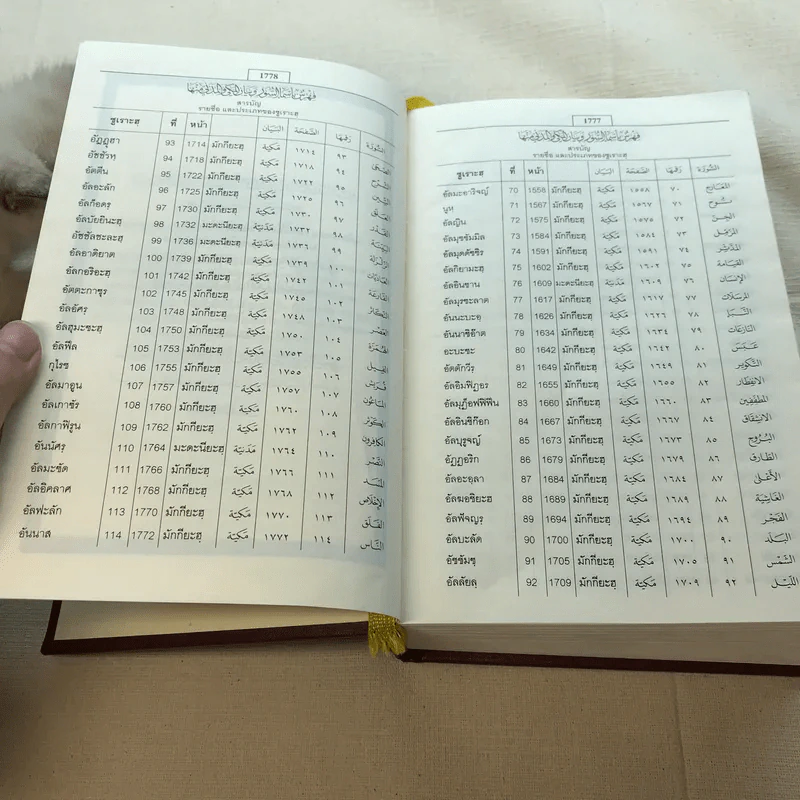 1777
فهرس بأسماء السور وبيان المكي والمدني منها
สารบัญ
รายชื่อ และประเภทของซูเราะฮฺ
ซูเราะฮฺ ที่ หน้า البَيَان الصَّفحَة رَقمُهَا السُّورَة
อัลมะอาริจญ์ 70 1558 มักกียะฮฺ مَكيّة ١٥٥٨ ٧٠ المعَارِج
นูห 71 1567 มักกียะฮฺ مَكيّة ١٥٦٧ ٧١ نُوح
อัลญิน 72 1575 มักกียะฮฺ مَكيّة ١٥٧٥ ٧٢ الجِنّ
อัลมุซซัมมิล 73 1584 มักกียะฮฺ مَكيّة ١٥٨٤ ٧٣ المُزَّمِّل
อัลมุดดัซซิร 74 1591 มักกียะฮฺ مَكيّة ١٥٩١ ٧٤ المُدَّثِّر
อัลกิยามะฮฺ 75 1602 มักกียะฮฺ مَكيّة ١٦٠٢ ٧٥ القِيَامَة
อัลอินซาน 76 1609 มะดะนียะฮฺ مَدَنيّة ١٦٠٩ ٧٦ الإنسَان
อัลมุรซะลาต 77 1617 มักกียะฮฺ مَكيّة ١٦١٧ ٧٧ المُرسَلات
อันนะบะอฺ 78 1626 มักกียะฮฺ مَكيّة ١٦٢٦ ٧٨ النَّبَإ
อันนาซิอ๊าต 79 1634 มักกียะฮฺ مَكيّة ١٦٣٤ ٧٩ النّازعَات
อะบะซะ 80 1642 มักกียะฮฺ مَكيّة ١٦٤٢ ٨٠ عَبَسَ
อัตตักวีร 81 1649 มักกียะฮฺ مَكيّة ١٦٤٩ ٨١ التّكوير
อัลอิมฟิฏอร 82 1655 มักกียะฮฺ مَكيّة ١٦٥٥ ٨٢ الانفِطار
อัลมุฏ็อฟฟิฟีน 83 1660 มักกียะฮฺ مَكيّة ١٦٦٠ ٨٣ المطفّفِين
อัลอินชิก๊อก 84 1667 มักกียะฮฺ مَكيّة ١٦٦٧ ٨٤ الانشقاق
อัลบุรูจญ์ 85 1673 มักกียะฮฺ مَكيّة ١٦٧٣ ٨٥ البُرُوج
อัฏฏอริก 86 1679 มักกียะฮฺ مَكيّة ١٦٧٩ ٨٦ الطّارق
อัลอะอฺลา 87 1684 มักกียะฮฺ مَكيّة ١٦٨٤ ٨٧ الأعلى
อัลฆอชิยะฮฺ 88 1689 มักกียะฮฺ مَكيّة ١٦٨٩ ٨٨ الغَاشِيَة
อัลฟัจญรฺ 89 1694 มักกียะฮฺ مَكيّة ١٦٩٤ ٨٩ الفَجر
อัลบะลัด 90 1700 มักกียะฮฺ مَكيّة ١٧٠٠ ٩٠ البَلَد
อัชชัมซฺ 91 1705 มักกียะฮฺ مَكيّة ١٧٠٥ ٩١ الشّمس
อัลลัยลฺ 92 1709 มักกียะฮฺ مَكيّة ١٧٠٩ ٩٢ اللّيل
1778
فهرس بأسماء السور وبيان المكي والمدني منها
สารบัญ
รายชื่อ และประเภทของซูเราะฮฺ
ซูเราะฮฺ ที่ หน้า البَيَان الصَّفحَة رَقمُهَا السُّورَة
อัฎฎุฮา 93 1714 มักกียะฮฺ مَكيّة ١٧١٤ ٩٣ الضّحى
อัชชัรหฺ 94 1718 มักกียะฮฺ مَكيّة ١٧١٨ ٩٤ الشَّرح
อัตตีน 95 1722 มักกียะฮฺ مَكيّة ١٧٢٢ ٩٥ التِّين
อัลอะลัก 96 1725 มักกียะฮฺ مَكيّة ١٧٢٥ ٩٦ العَلَق
อัลก็อดรฺ 97 1730 มักกียะฮฺ مَكيّة ١٧٣٠ ٩٧ القَدر
อัลบัยยินะฮฺ 98 1732 มะดะนียะฮฺ مَدَنيّة ١٧٣٢ ٩٨ البَيّنَة
อัซซัลซะละฮฺ 99 1736 มะดะนียะฮฺ مَدَنيّة ١٧٣٦ ٩٩ الزّلزَلة
อัลอาดิยาต 100 1739 มักกียะฮฺ مَكيّة ١٧٣٩ ١٠٠ العَاديَات
อัลกอริอะฮฺ 101 1742 มักกียะฮฺ مَكيّة ١٧٤٢ ١٠١ القَارعَة
อัตตะกาซุร 102 1745 มักกียะฮฺ مَكيّة ١٧٤٥ ١٠٢ التّكَاثُر
อัลอัศรฺ 103 1748 มักกียะฮฺ مَكيّة ١٧٤٨ ١٠٣ العَصر
อัลฮุมะซะฮฺ 104 1750 มักกียะฮฺ مَكيّة ١٧٥٠ ١٠٤ الهُمَزة
อัลฟีล 105 1753 มักกียะฮฺ مَكيّة ١٧٥٣ ١٠٥ الفِيل
กุไรช 106 1755 มักกียะฮฺ مَكيّة ١٧٥٥ ١٠٦ قُرَيش
อัลมาอูน 107 1757 มักกียะฮฺ مَكيّة ١٧٥٧ ١٠٧ المَاعُون
อัลเกาซัร 108 1760 มักกียะฮฺ مَكيّة ١٧٦٠ ١٠٨ الكَوثَر
อัลกาฟิรูน 109 1762 มักกียะฮฺ مَكيّة ١٧٦٢ ١٠٩ الكافِرون
อันนัศรฺ 110 1764 มะดะนียะฮฺ مَدَنيّة ١٧٦٤ ١١٠ النّصر
อัลมะซัด 111 1766 มักกียะฮฺ مَكيّة ١٧٦٦ ١١١ المَسَد
อัลอิคลาศ 112 1768 มักกียะฮฺ مَكيّة ١٧٦٨ ١١٢ الإخلاص
อัลฟะลัก 113 1770 มักกียะฮฺ مَكيّة ١٧٧٠ ١١٣ الفَلَق
อันนาส 114 1772 มักกียะฮฺ مَكيّة ١٧٧٢ ١١٤ النّاس